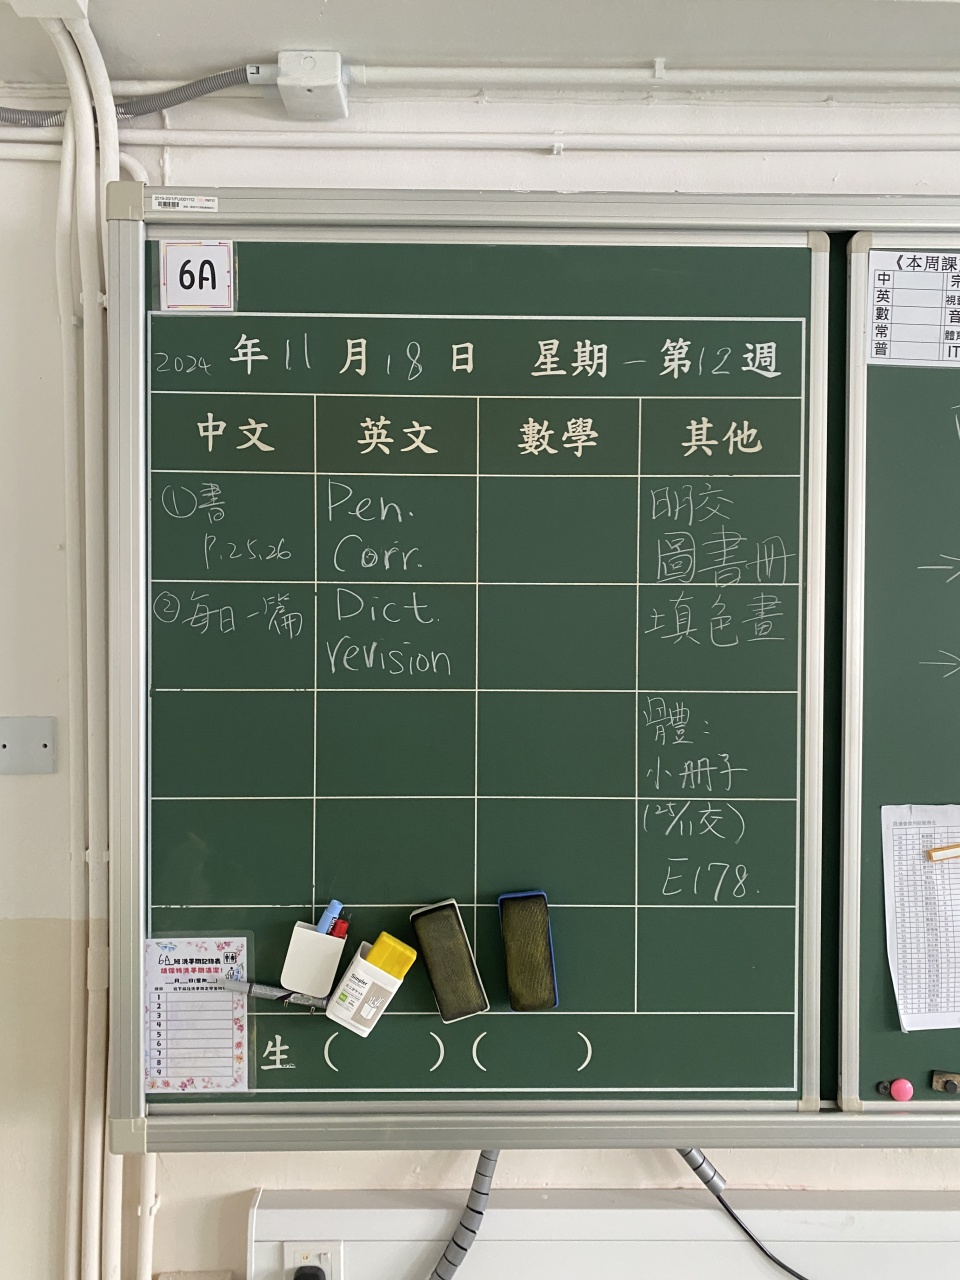 6A
2024 年 11 月 18 日 星期一 第 12 週
中文 英文 數學 其他
①書
P.25,26
②每日一篇
Pen.
Corr.
Dict.
revision
明交
圖書冊
填色畫
體：
小冊子
(25/11交)
E178.
生 ( ) ( )
6A 班洗手間記錄表
1
2
3
4
5
6
7
8
9
Simpler
《本周課
中
英
數
常
普
音
IT